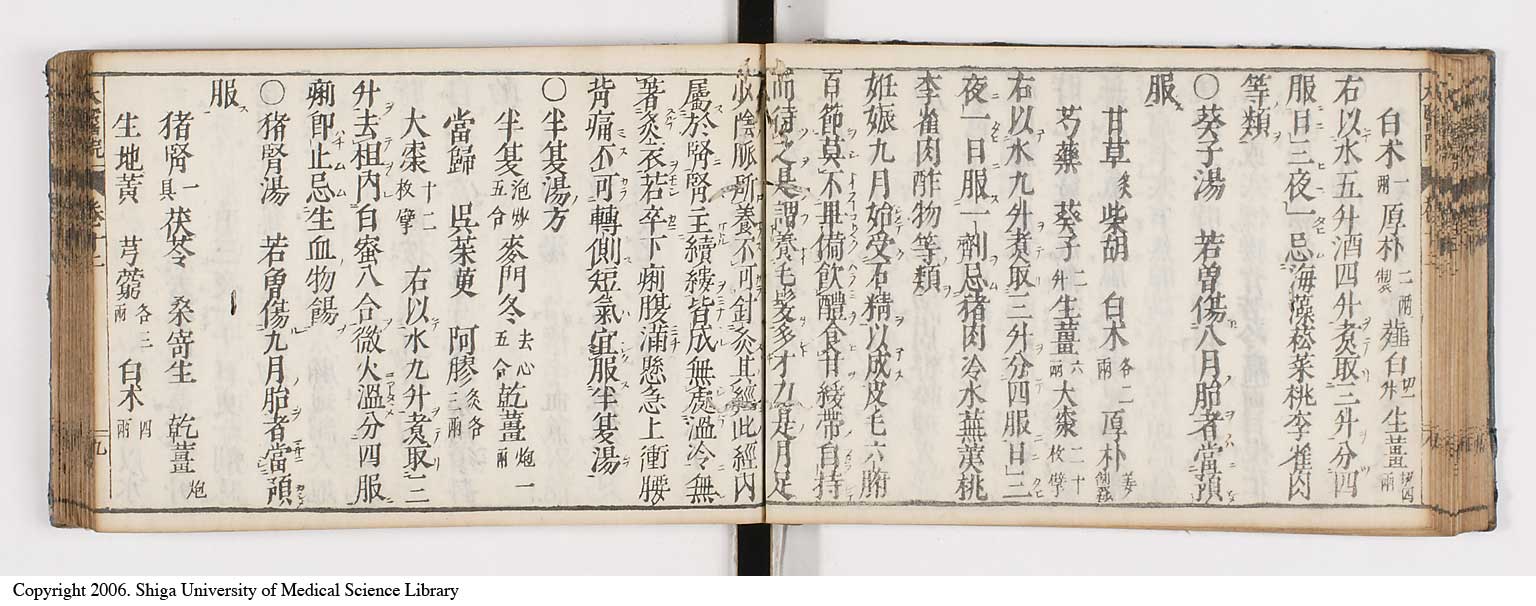 白朮一兩厚朴二兩製薤白切一升生薑切四兩
右以水五升酒四升煮取三升分四
服日三夜一忌海藻菘菜桃李雀肉
等類
○葵子湯 若曾傷八月胎者當預
服
甘草炙柴胡 白朮各二兩厚朴薑製
芍藥 葵子二升生薑六兩大棗二十枚擘
右以水九升煮取三升分四服日三
夜一日服一劑忌豬肉冷水蕪荑桃
李雀肉酢物等類
妊娠九月始受石精以成皮毛六腑
百節莫不畢備飲醴食甘緩帶自持
而待之是謂養毛髮多才力足月足
少陰脈所養不可針灸其經此經內
屬於腎腎主續縷皆成無處溫冷無
著炙衣若卒下痢腹滿懸急上衝腰
背痛不可轉側短氣宜服半夏湯
○半夏湯方
半夏泡炒五合麥門冬去心五合乾薑炮一兩
當歸 吳茱萸 阿膠炙各三兩
大棗十二枚擘 右以水九升煮取三
升去柤內白蜜八合微火溫分四服
痢即止忌生血物餳
○豬腎湯 若曾傷九月胎者當預
服
豬腎一具茯苓 桑寄生 乾薑炮
生地黃 芎藭各三兩 白朮四兩
卷十二
九
Copyright 2006. Shiga University of Medical Science Library